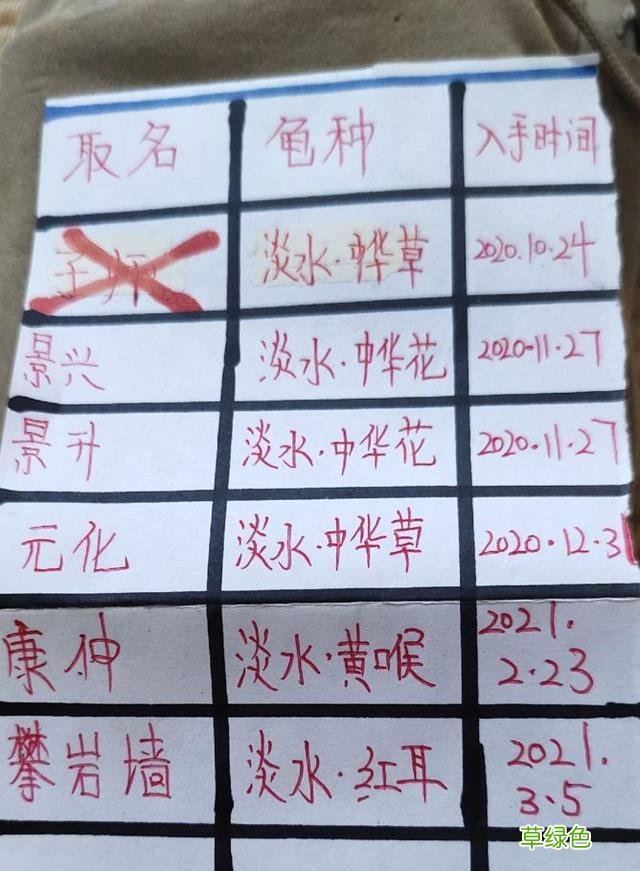 取名 龟种 入手时间
子师 淡水·中华草 2020.10.24
景兴 淡水·中华花 2020·11·27
景升 淡水·中华花 2020.11.27
元化 淡水·中华草 2020·12·31
康伸 淡水·黄喉 2021.
2·23
攀岩墙 淡水·红耳 2021.
3·5
草绿色